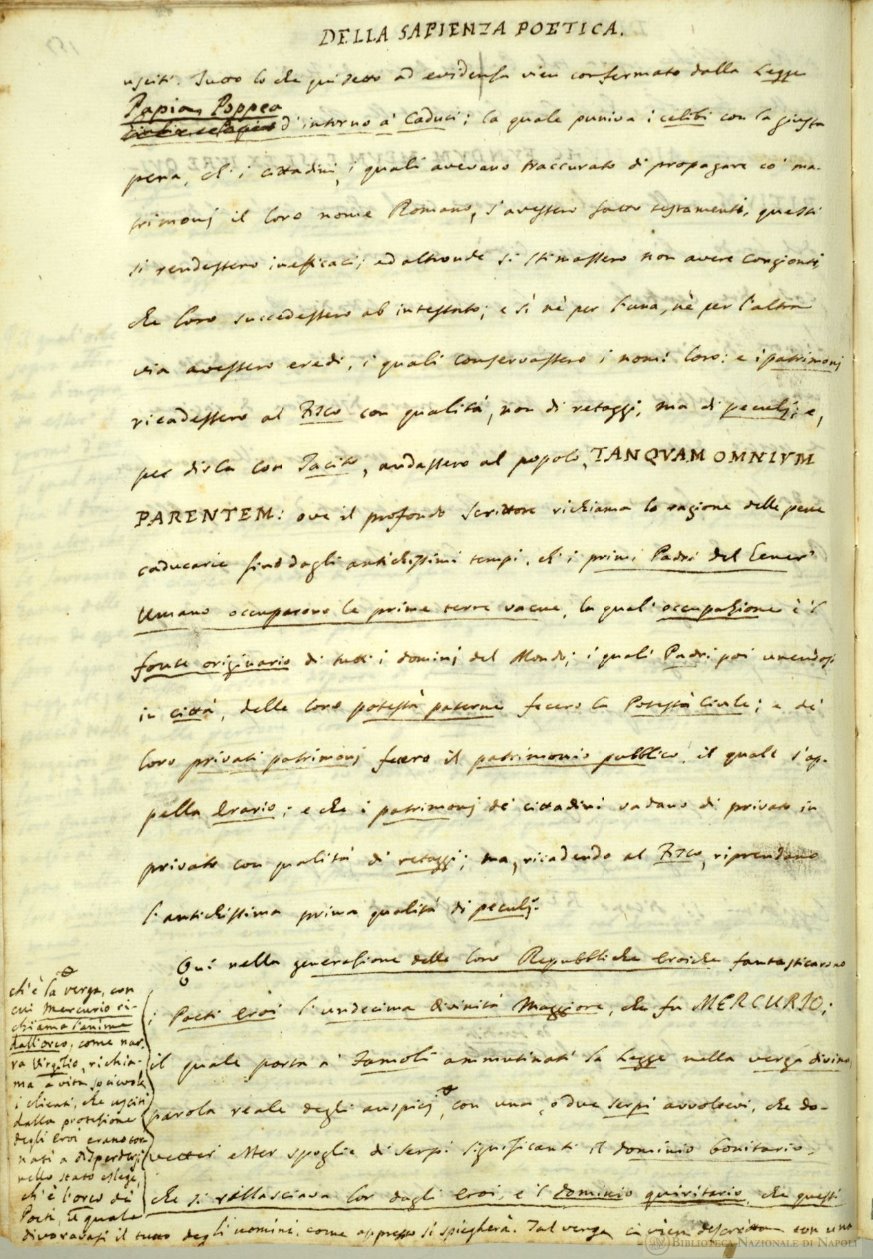 DELLA SAPIENZA POETICA.
usciti. Tutto lo che quì detto ad evidenza vien confermato dalla Legge
Papia, Poppea
d'intorno a' Caduci; la quale puniva i celibi con la giusta
pena, ch'i cittadini, i quali avevano traccurato di propagare co' ma-
trimonj il loro nome Romano, s'avessero fatto testamenti, questi
si rendessero inefficaci; ed altronde si stimassero non avere congionti,
che loro succedessero ab intestato; e sì nè per l'una, nè per l'altra
via avessero eredi, i quali conservassero i nomi loro: e i patrimonj
ricadessero al Fisco con qualità, non di retaggj, ma di peculj; e,
per dirla con Tacito, andassero al popolo, TANQVAM OMNIVM
PARENTEM: ove il profondo Scrittore richiama la ragione delle pene
caducarie fino dagli antichissimi tempi, ch'i primi Padri del Gener'
Umano occuparono le prime terre vacue, la quali occupazione è 'l
fonte originario di tutti i dominj del Mondo; i quali Padri poi unendosi
in città, delle loro potestà paterne fecero la Potestà Civile; e de'
loro privati patrimonj fecero il patrimonio pubblico, il quale s'ap-
pella Erario; e che i patrimonj de' cittadini vadano di privato in
privato con qualità di retaggj; ma, ricadendo al Fisco, riprendano
l'antichissima prima qualità di peculj.
Quì nella generazione delle loro Repubbliche eroiche fantasticarono
i Poeti eroi l'undecima Divinità Maggiore, che fu MERCURIO;
il quale porta a' Famoli ammutinati la Legge nella verga divina,
parola reale degli auspicj, con una, o due serpi avvoltevi, che do-
vetter esser spoglie di serpi significanti il dominio bonitario,
che si rillasciava lor dagli Eroi, e 'l dominio quiritario, che questi
degli uomini, come appresso si spiegherà. Tal verga ci vien descritta con una
ch'è la verga, con
cui Mercurio ri-
chiama l'anime
dall'orco, come nar-
ra Virgilio, richia-
ma a vita socievole
i clienti, che usciti
dalla protezione
degli Eroi erano tor-
nati a disperdersi
nello stato eslege,
ch'è l'orco de'
Poeti, il quale
divoravasi il tutto
BIBLIOTECA NAZIONALE DI NAPOLI